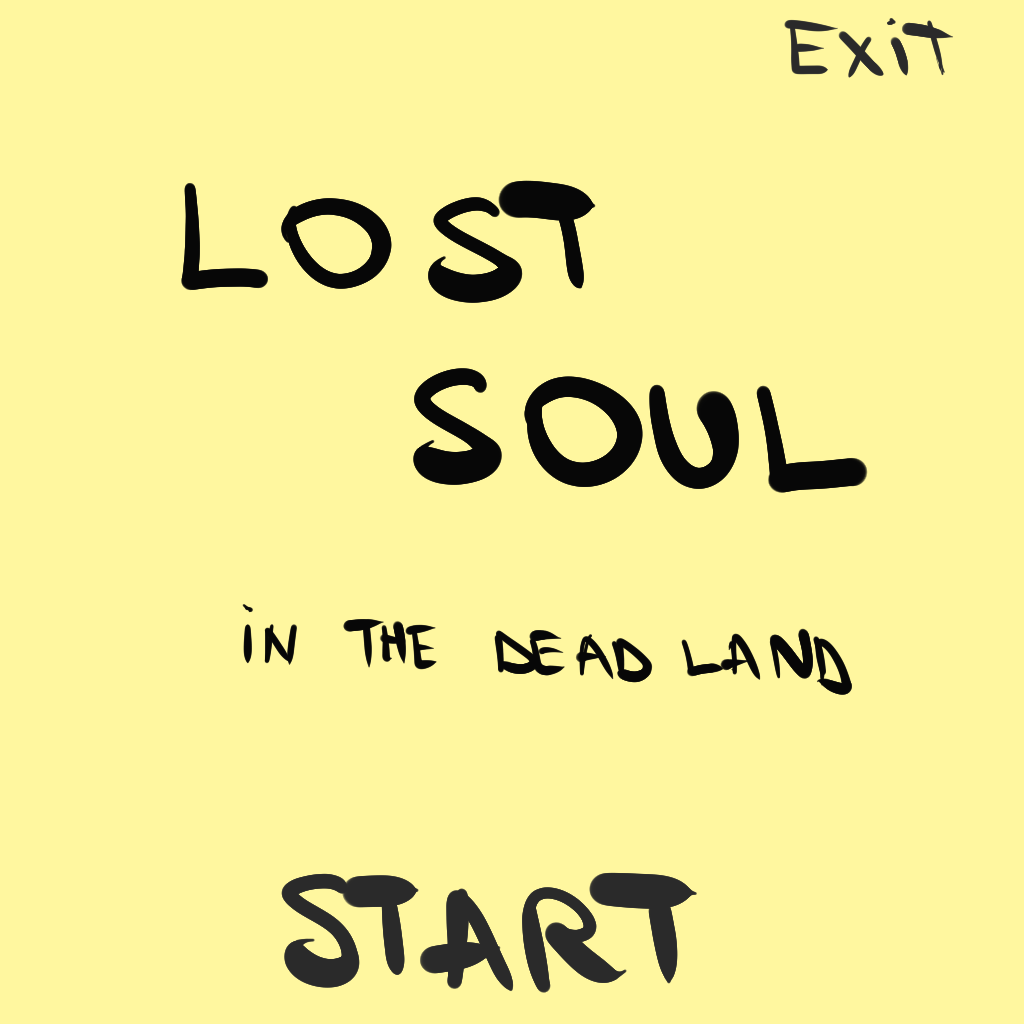 EXiT
LOST
SOUL
iN THE DEAD LAND
START